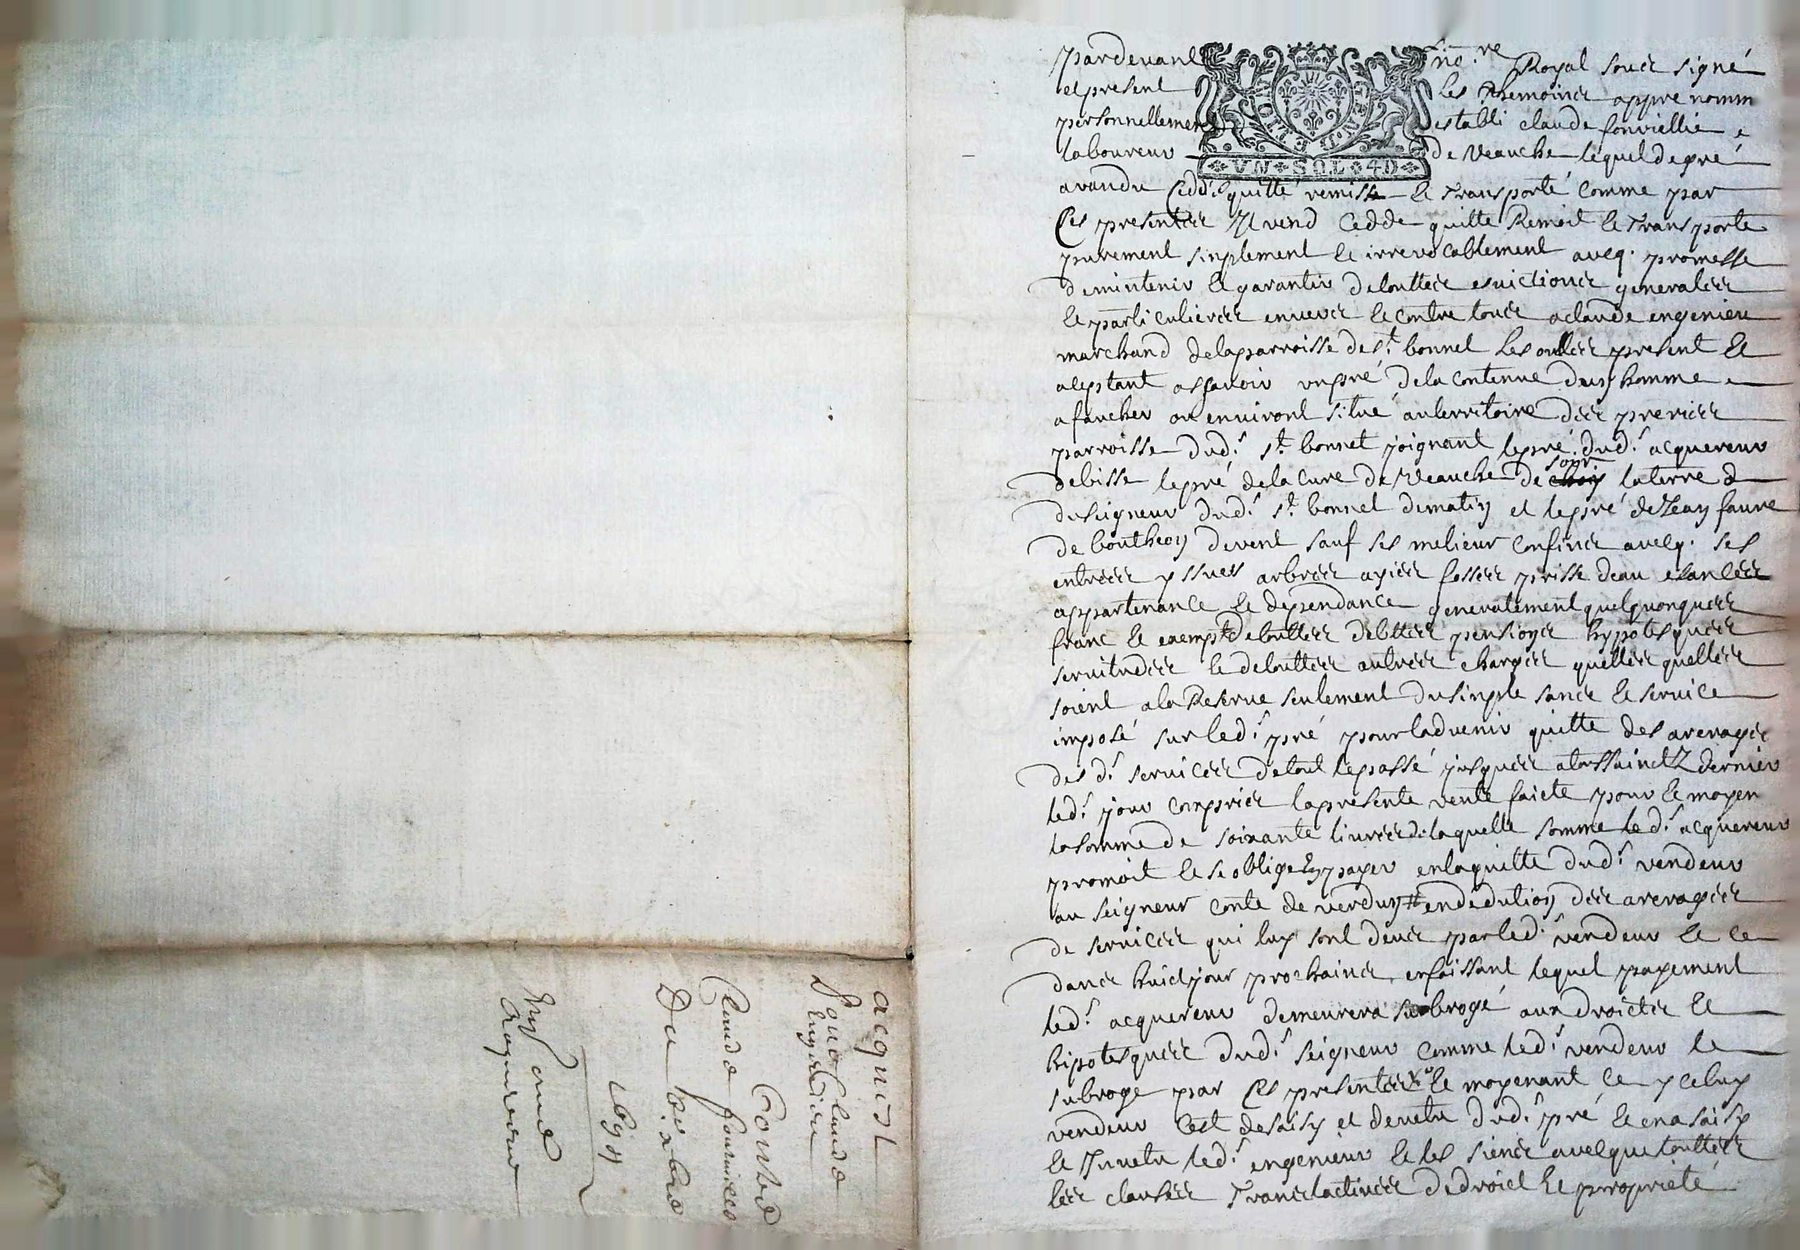 pardevant no.re Royal soubz signé
et present les tesmoins appre nomm
personnellement establi claude fonviellie
laboureur de Veauche lequel de gré
a vandu Ceddé quitté remis et transporté comme par
Ces presentes Il vend Cedde quitte Remet et transporte
purement sinplement et irrevocablement avecq. promesse
de mintenir et garantir de touttes evictions generalles
et particulieres envers et contre tous a claude engenieu
marchand de la parroisse de st. bonnet les oulles present et
aceptant assavoir un pré de la contenue dun homme
a faucher ou environt situé au territoire des
parroisse dud. st. bonnet joignant le pré dud. acquereur
de bisse le pré de la cure de Veauche de soir la terre d
du seigneur dud. st. bonnet de matin et le pré de Jean faure
de boutheon de vent sauf ses melieur confins avecq. ses
entrées yssues arbres ayies fossés prisse deau
appartenance et dependance generalement quelquonques
franc et exempt de touttes debttes pensions hypotesques
servitudes et de touttes autres charges quelles quelles
soient a la Reserve seulement du sinple sans et service
imposé sur led. pré pour ladvenir quitte des arerages
des d. services de tout le passé jusques a la toussainctz dernier
led. jour compris la presente vente faicte pour et moyen
la somme de soixante livres de laquelle somme led. acquereur
promait et se oblige en payer en laquitte dud. vendeur
au seigneur conte de verdun en dedution des arerages
de services qui luy sont deues par led. vendeur et ce
dans huict jour prochains en faissant lequel payement
led. acquereur demeurera subrogé aux droicts et
hipotesques dud. seigneur comme led. vendeur le
subroge par Ces presentes et moyenant ce yceluy
vendeur Cest desaisy et devetu dud. pré et en a saisy
et Invetu led. engenieu et les siens avecque touttes
les clauses translactives de droict et proprieté
acquist
Pour Claude
Engenieu
Contre
Claude fonvielle
Du 8.e xbre
1691